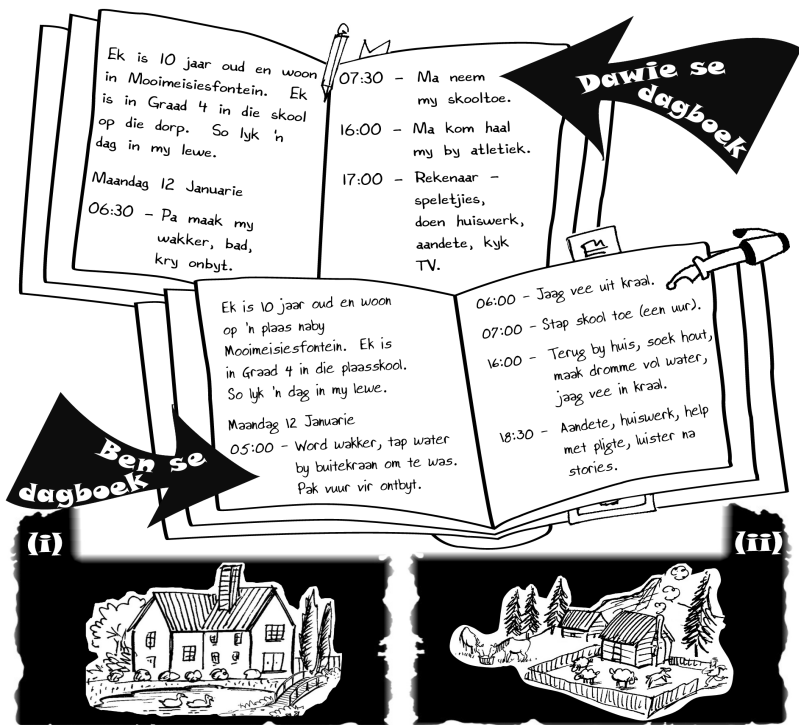 Dawie se
dagboek
Ek is 10 jaar oud en woon
in Mooimeisiesfontein. Ek
is in Graad 4 in die skool
op die dorp. So lyk 'n
dag in my lewe.
Maandag 12 Januarie
06:30 – Pa maak my
wakker, bad,
kry onbyt.
07:30 – Ma neem
my skooltoe.
16:00 – Ma kom haal
my by atletiek.
17:00 – Rekenaar –
speletjies,
doen huiswerk,
aandete, kyk
TV.
Ben se
dagboek
Ek is 10 jaar oud en woon
op 'n plaas naby
Mooimeisiesfontein. Ek is
in Graad 4 in die plaasskool.
So lyk 'n dag in my lewe.
Maandag 12 Januarie
05:00 – Word wakker, tap water
by buitekraan om te was.
Pak vuur vir ontbyt.
06:00 – Jaag vee uit kraal.
07:00 – Stap skool toe (een uur).
16:00 – Terug by huis, soek hout,
maak dromme vol water,
jaag vee in kraal.
18:30 – Aandete, huiswerk, help
met pligte, luister na
stories.
(i)
(ii)